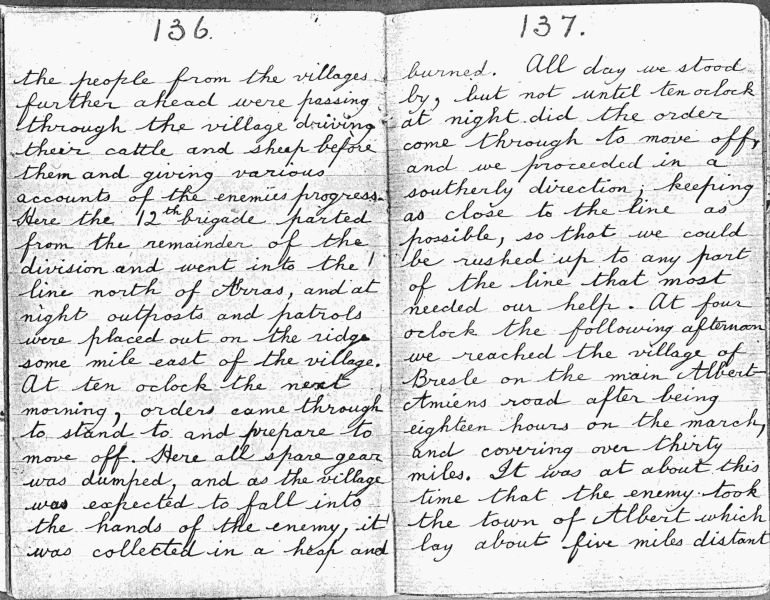 136.
the people from the villages
further ahead were passing
through the village driving
their cattle and sheep before
them and giving various
accounts of the enemies progress.
Here the 12th brigade parted
from the remainder of the
division and went into the
line north of Arras, and at
night outposts and patrols
were placed out on the ridge
some mile east of the village.
At ten oclock the next
morning, orders came through
to stand to and prepare to
move off. Here all spare gear
was dumped, and as the village
was expected to fall into
the hands of the enemy, it
was collected in a heap and
137.
burned. All day we stood
by, but not until ten oclock
at night did the order
come through to move off,
and we proceeded in a
southerly direction, keeping
as close to the line as
possible, so that we could
be rushed up to any part
of the line that most
needed our help. At four
oclock the following afternoon
we reached the village of
Bresle on the main Albert
Amiens road after being
eighteen hours on the march,
and covering over thirty
miles. It was at about this
time that the enemy took
the town of Albert which
lay about five miles distant